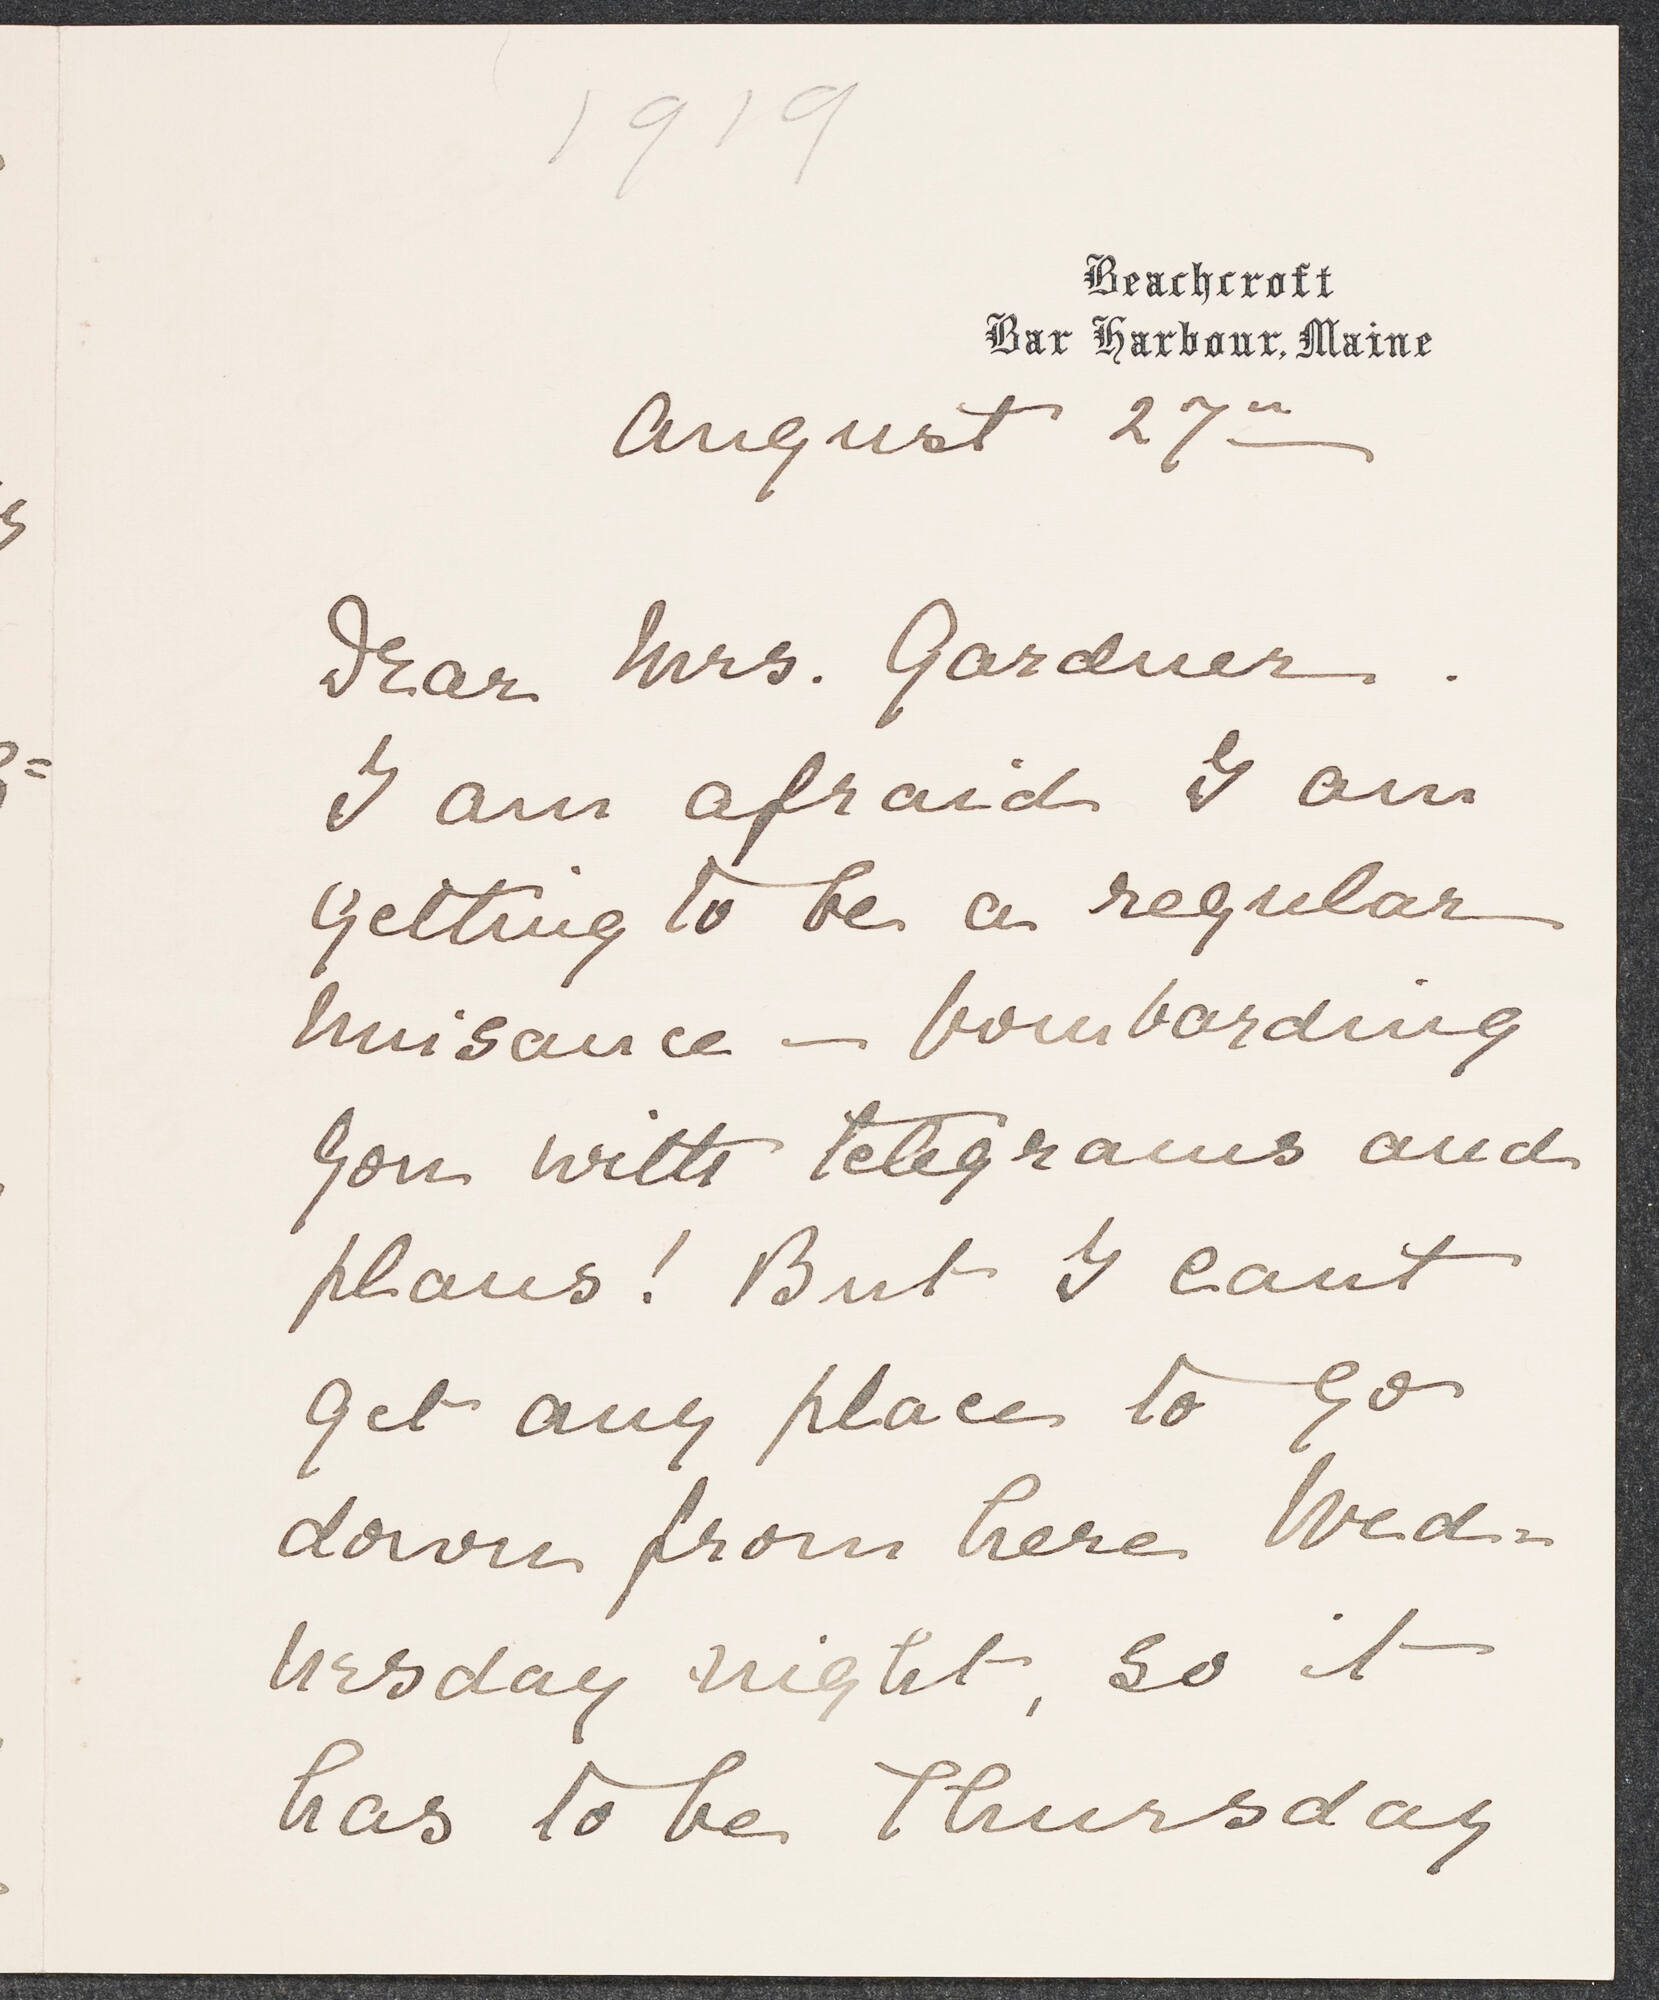 1919
Beachcroft
Bar Harbour, Maine
August 27"
Dear Mrs. Gardner.
I am afraid I am
getting to be a regular
nuisance — bombarding
you with telegrams and
plans! But I cant
get any place to go
down from here Wed=
nesday night, so it
has to be Thursday